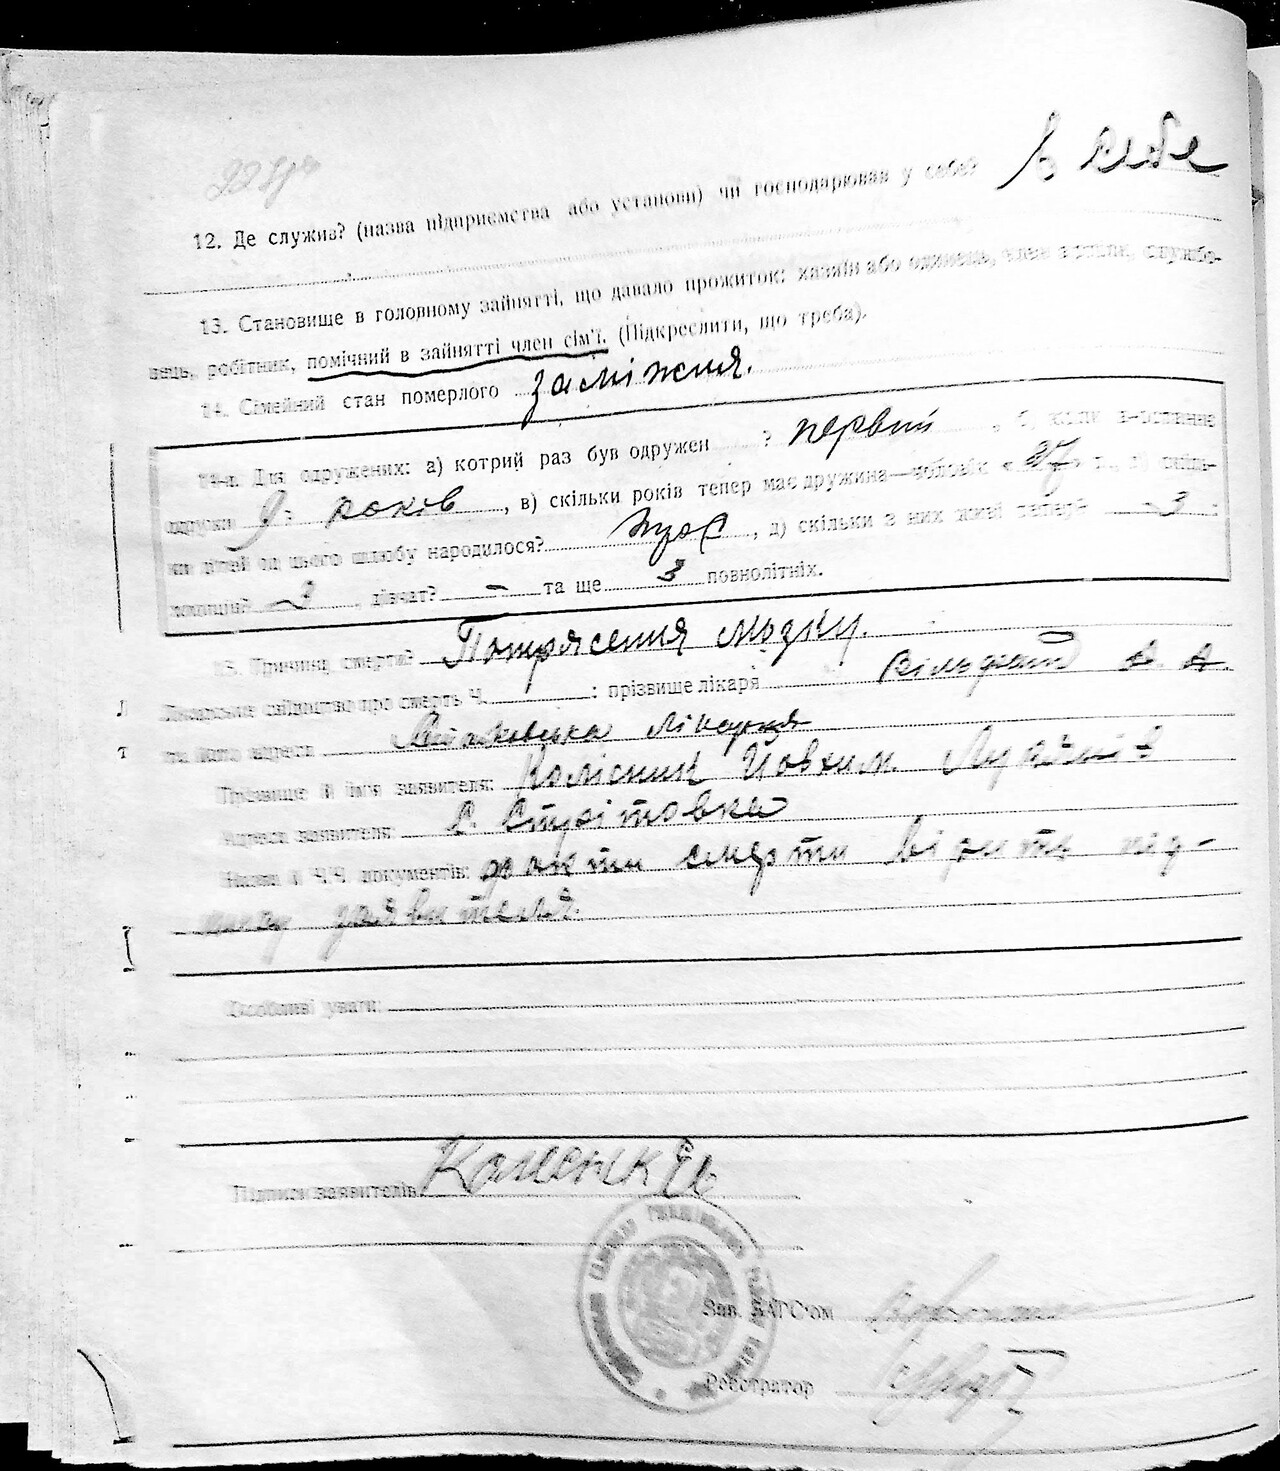 12. Де служив? (назва підприємства або установи) чи господарював у себе? в себе
13. Становище в головному зайнятті, що давало прожиток: хазяїн або одинець, член артіли, службо-
вець, робітник, помічний в зайнятті член сім'ї. (Підкреслити, що треба).
14. Сімейний стан померлого заміжня.
14-а. Для одружених: а) котрий раз був одружен ? первий, б)
одружен 9: років, в) скільки років тепер має дружина—чоловік 37 г) скіль-
ки дітей од цього шлюбу народилося? троє, д) скільки з них живі тепер? 3:
хлопців? 3, дівчат? - та ще 3 повнолітніх.
15. Причина смерти? Потрясения мозку.
Лікарське свідоцтво про смерть Ч. : прізвище лікаря А. А.
та його адреса лікарня
Прізвище й ім'я заявителя: Колісник Йовхим
Адреса заявителя: С. Стрітовка
Назви і Ч.Ч. документів: факти смерти
заявителя.
Особливі уваги:
Підписи заявителів
Зав. ЗАГС'ом
Реєстратор